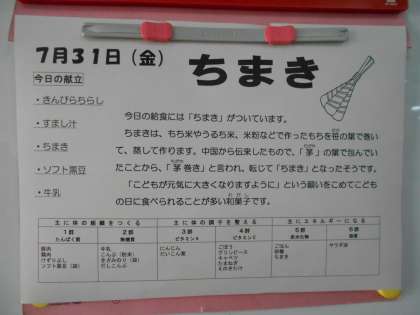 7月31日（金）
ちまき
今日の献立
・きんぴらちらし
・すまし汁
・ちまき
・ソフト黒豆
・牛乳
今日の給食には「ちまき」がついています。
ちまきは、もち米やうるち米、米粉などで作ったもちを笹の葉で巻い
て、蒸して作ります。中国から伝来したもので、「茅」の葉で包んでい
たことから、「茅巻き」と言われ、転じて「ちまき」となったそうです。
「こどもが元気に大きくなりますように」という願いをこめてこども
の日に食べられることが多い和菓子です。
主に体の組織をつくる 主に体の調子を整える 主にエネルギーになる
1群 2群 3群 4群 5群 6群
たんぱく質 無機質 ビタミンA ビタミンC 炭水化物 脂質
豚肉 牛乳 にんじん ごぼう ごはん サラダ油
鶏肉 こんぶ（粉末） だいこん葉 グリンピース 砂糖
けずりぶし きざみのり（袋） キャベツ ちまき
ソフト黒豆（袋） だしこんぶ たまねぎ
えのきたけ